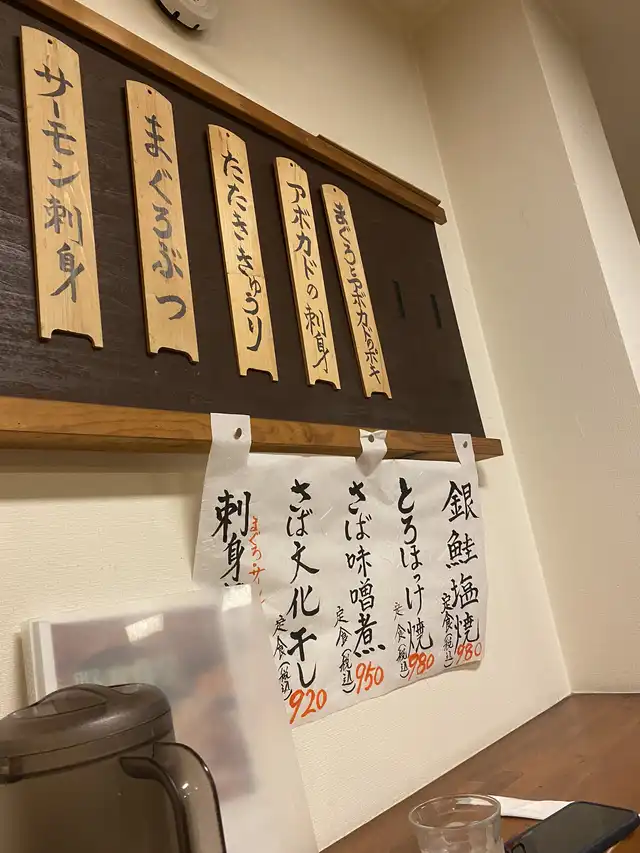 まぐろとアボカドのポキ
アボカドの刺身
たたききゅうり
まぐろぶつ
サーモン刺身
銀鮭塩焼
定食(税込)
980
とろほっけ焼
定食(税込)
980
さば味噌煮
定食(税込)
950
さば文化干し
定食(税込)
920
まぐろ・サー
刺身